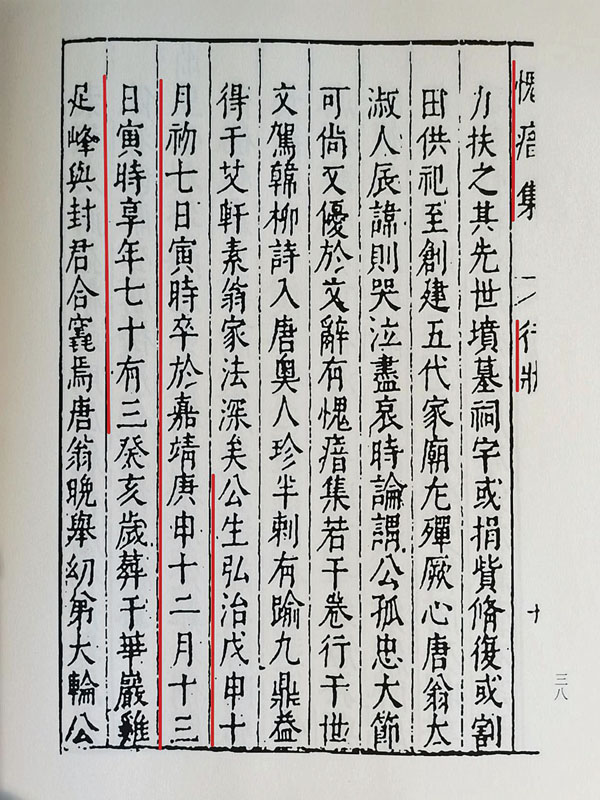 愧瘖集
行狀
十
三八
力扶之其先世墳墓祠宇或捐貲脩復或割
田供祀至創建五代家廟尤殫厥心唐翁太
淑人辰諱則哭泣盡哀時論謂公孤忠大節
可尚文優於文辭有愧瘖集若干卷行于世
文駕韓柳詩入唐奧人珍半刺有踰九鼎益
得于艾軒素翁家法深矣公生弘治戊申十
月初七日寅時卒於嘉靖庚申十二月十三
日寅時享年七十有三癸亥歲葬于華巖雞
足峰與封君合窆焉唐翁晚舉幼弟大輪公